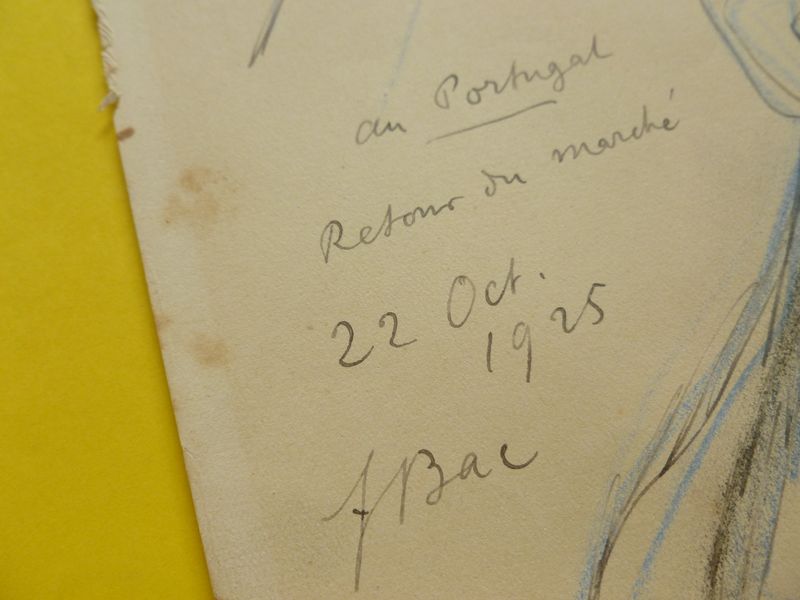 au Portugal
Retour du marché
22 Oct.
1925
f Bac